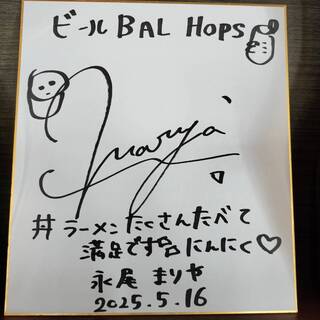 ビール BAL HOPS
Mariya
#ラーメンたくさんたべて
満足です にんにく♡
永尾 まりや
2025.5.16